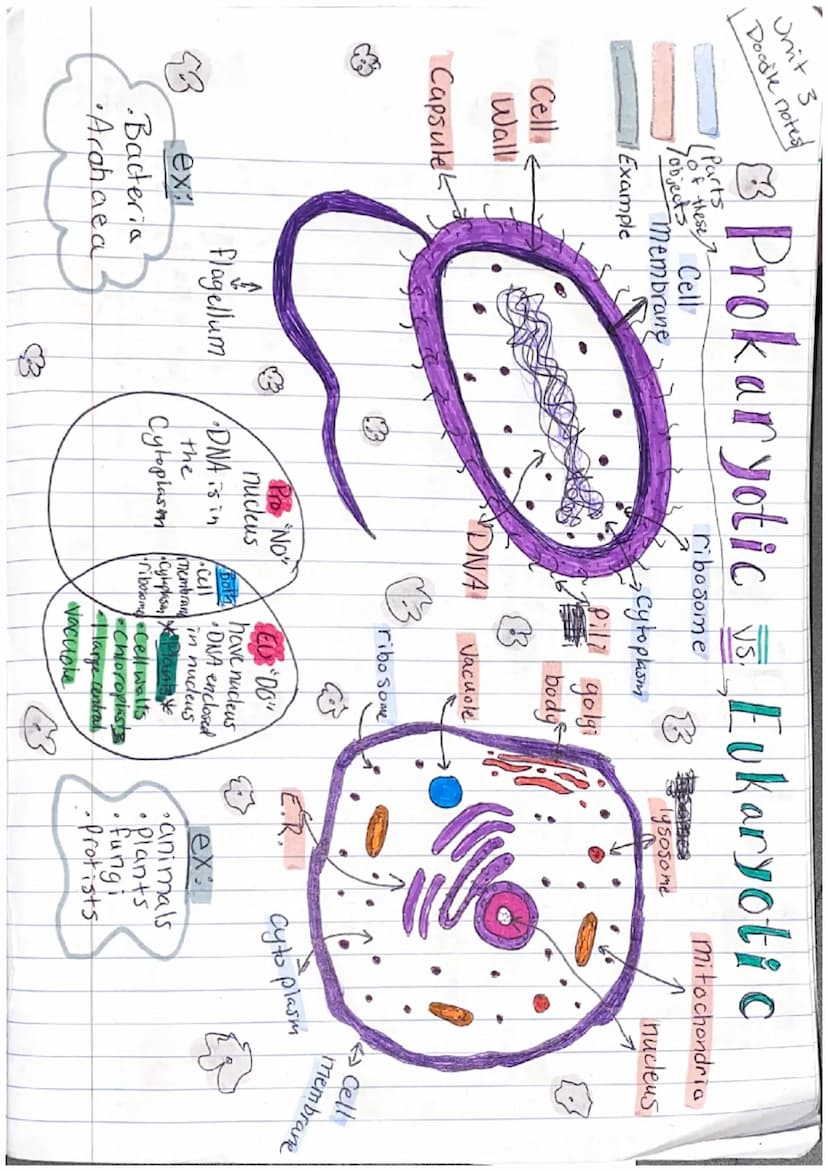 Unit 3
Doodle notes
Prokaryotic vs. Eukaryotic
Parts
of these
objects
Example
Cell
Membrane
ribosome
Cytoplasm
Pili
Cell
Wall
Capsule
DNA
flagellum
ex:
• Bacteria
• Archaea
lysosome
golgi
body
vacuole
ribosome
mitochondria
nucleus
E.R.
cytoplasm
cell
membrane
Pro "NO"
nucleus
• DNA is in
the
Cytoplasm
Both
• Cell
membrane
• Cytoplasm
• ribosome
EU "DO"
have nucleus
• DNA enclosed
in nucleus
* Plants *
• Cell walls
• Chloroplasts
• 1 large central
vacuole
ex:
• animals
• plants
• fungi
• protists